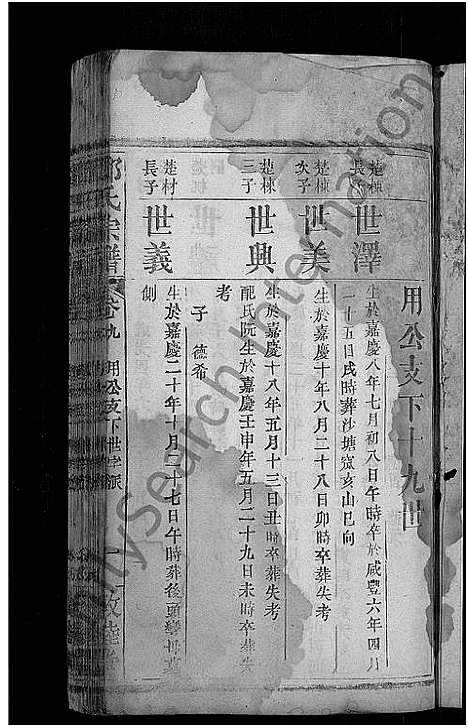 用公支下十九世
楚棟
長子
世澤
生於嘉慶八年七月初八日午時卒於咸豐六年四月
一十五日戌時葬沙塘窊亥山巳向
楚棟
次子
世美
生於嘉慶十年八月二十八日卯時卒葬失考
楚棟
三子
世興
生於嘉慶十八年五月十三日丑時卒葬失考
配氏阮生於嘉慶壬申年五月二十九日未時卒葬失
考
子 德希
楚材
長子
世義
生於嘉慶二十年十月二十七日午時葬後頭灣母墓
側
氏宗譜
卷九
用公支下世字派
FamilySearch International